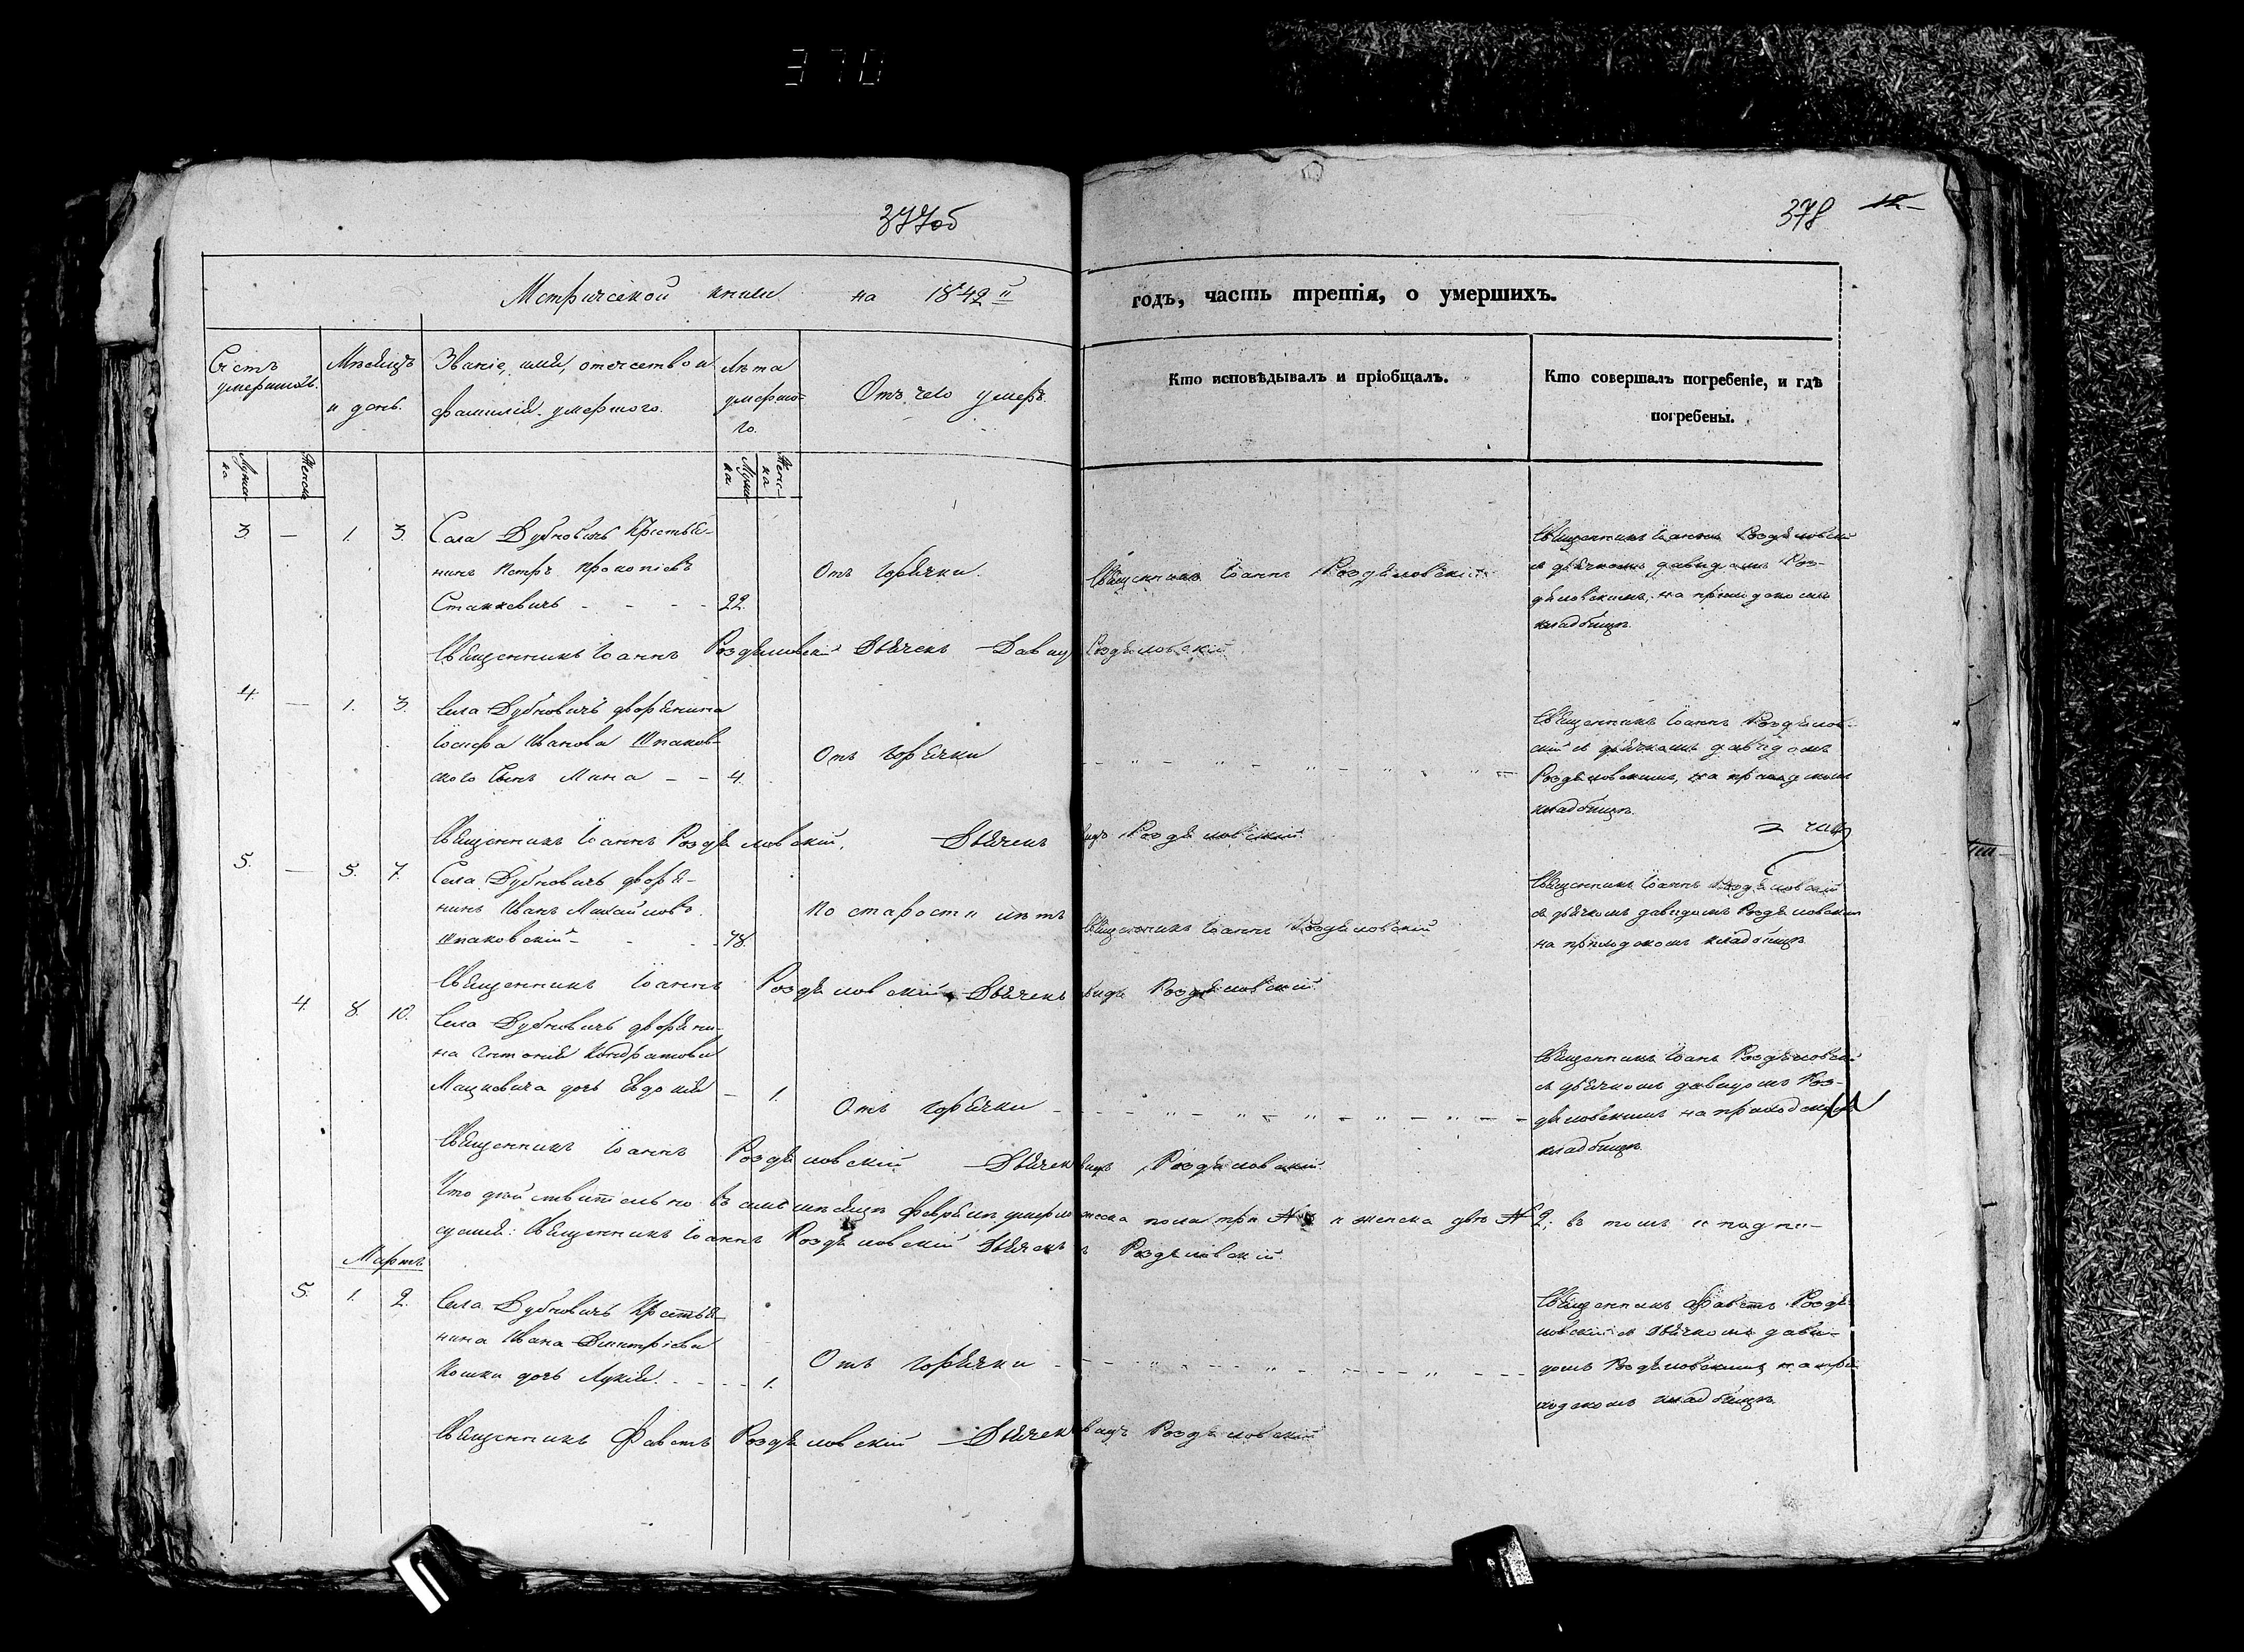 370
377об
378 12
Метрической книги на 1842й
годъ, часть третія, о умершихъ.
Счетъ умершихъ.
Мѣсяцъ и день.
Званіе, имя, отечество и фамилія умершого.
Лѣта умершо-
го.
Отъ чего умеръ.
Кто исповѣдывалъ и пріобщалъ.
Кто совершалъ погребеніе, и гдѣ
погребены.
Мужска
Женска
Мужска
Женска
3. — 1. 3. Села Дубновичъ Крестья-
нинъ Петръ Прокопіевъ
Станкевичъ - - - 22.
Отъ горячки.
Священникъ Іоаннъ Роздяловскій
Священникъ Іоаннъ Роздяловскій
съ дьячкомъ Давидомъ Роз-
дяловскимъ, на приходскомъ
кладбищѣ.
Священникъ Іоаннъ Роздяловскій Дьячекъ Давидъ Роздяловскій
4. — 1. 3. Села Дубновичъ дворянина
Іосифа Иванова Шпаков-
ского сынъ Мина - - 4.
Отъ горячки
Священникъ Іоаннъ Роздялов-
скій съ дьячкомъ Давидомъ
Роздяловскимъ, на приходскомъ
кладбищѣ.
Священникъ Іоаннъ Роздяловскій, Дьячекъ Роздяловскій
5. — 5. 7. Села Дубновичъ дворя-
нинъ Иванъ Михайловъ
Шпаковскій - - - 78.
По старости лѣтъ
Священникъ Іоаннъ Роздяловскій
Священникъ Іоаннъ Роздяловскій
съ дьячкомъ Давидомъ Роздяловскимъ
на приходскомъ кладбищѣ
Священникъ Іоаннъ Роздяловскій Дьячекъ Роздяловскій
4. 8. 10. Села Дубновичъ дворяни-
на Антонія Кондратова
Мацкевича дочь Евдокія - 1.
Отъ горячки
Священникъ Іоанъ Роздяловскій
съ дьячкомъ Давидомъ Роз-
дяловскимъ на приходскомъ
кладбищѣ.
Священникъ Іоаннъ Роздяловскій Дьячекъ Роздяловскій
Что дѣйствительно въ семъ мѣсяцѣ Февралѣ умерло мужеска пола три № и женска двѣ № 2. въ томъ и подпи-
суемся: Священникъ Іоаннъ Роздяловскій Дьячекъ Роздяловскій
Мартъ
5. 1. 2. Села Дубновичъ Крестья-
нина Ивана Димитріева
Кошки дочь Лукія. - - - 1.
Отъ горячки
Священникъ Фавстъ Роздя-
ловскій съ дьячкомъ Дави-
домъ Роздяловскимъ на при-
ходскомъ кладбищѣ
Священникъ Фавстъ Роздяловскій Дьячекъ Роздяловскій